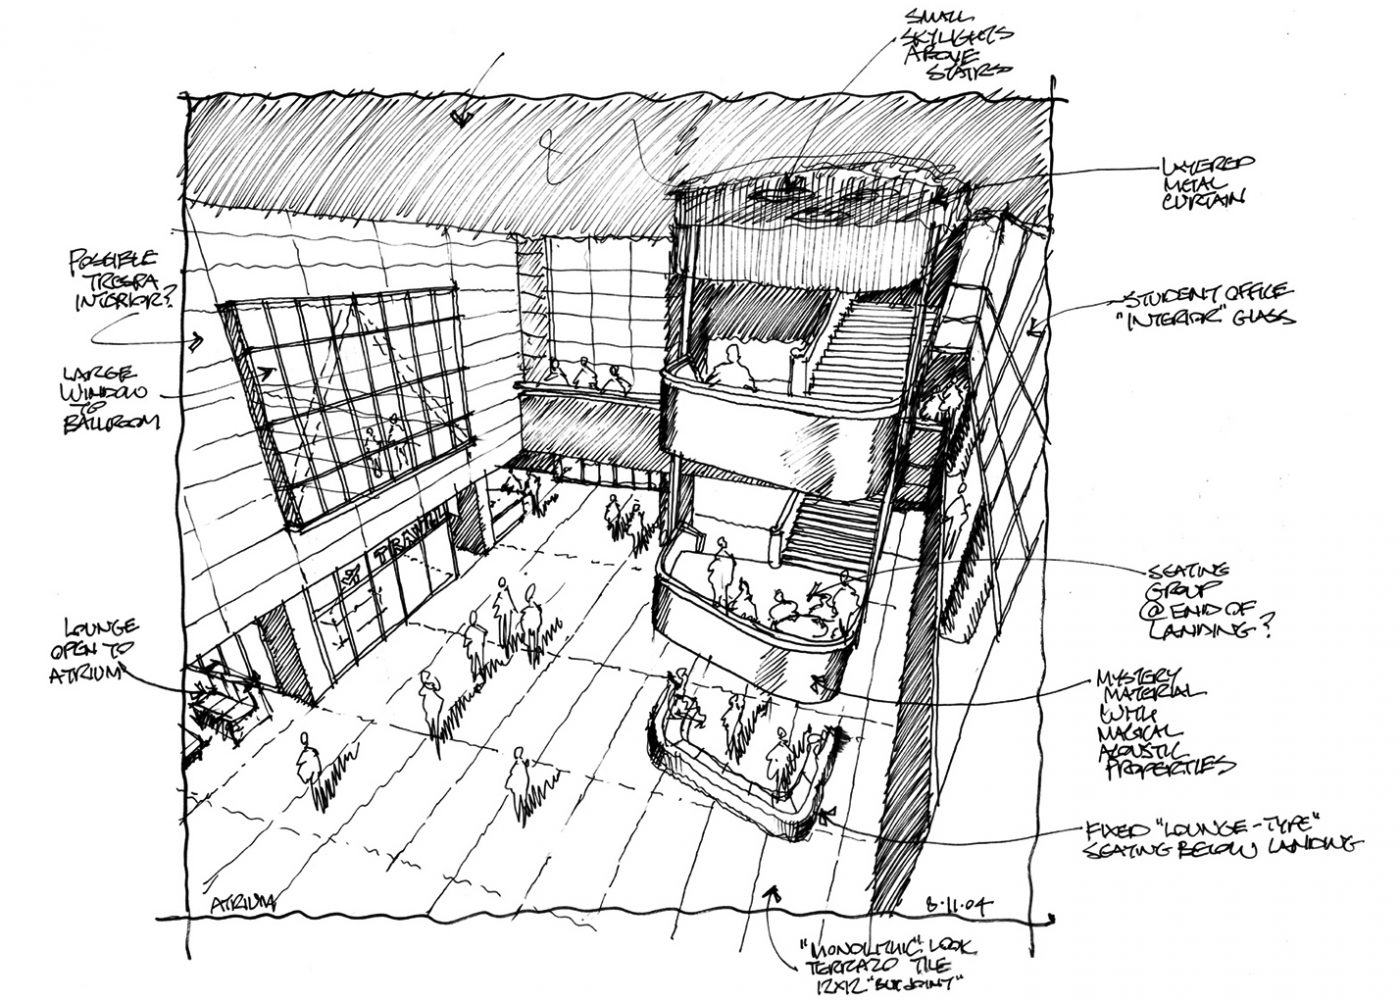 SMALL
SKYLIGHTS
ABOVE
STAIRS
LAYERED
METAL
CURTAIN
POSSIBLE
TRESPA
INTERIOR?
STUDENT OFFICE
"INTERIOR" GLASS
LARGE
WINDOW
TO
BALLROOM
TRAVEL
SEATING
GROUP
@ END OF
LANDING?
LOUNGE
OPEN TO
ATRIUM
MYSTERY
MATERIAL
WITH
MAGICAL
ACOUSTIC
PROPERTIES
FIXED "LOUNGE-TYPE"
SEATING BELOW LANDING
ATRIUM
8·11·04
"MONOLITHIC" LOOK
TERRAZO TILE
12X12 "BUTJOINT"